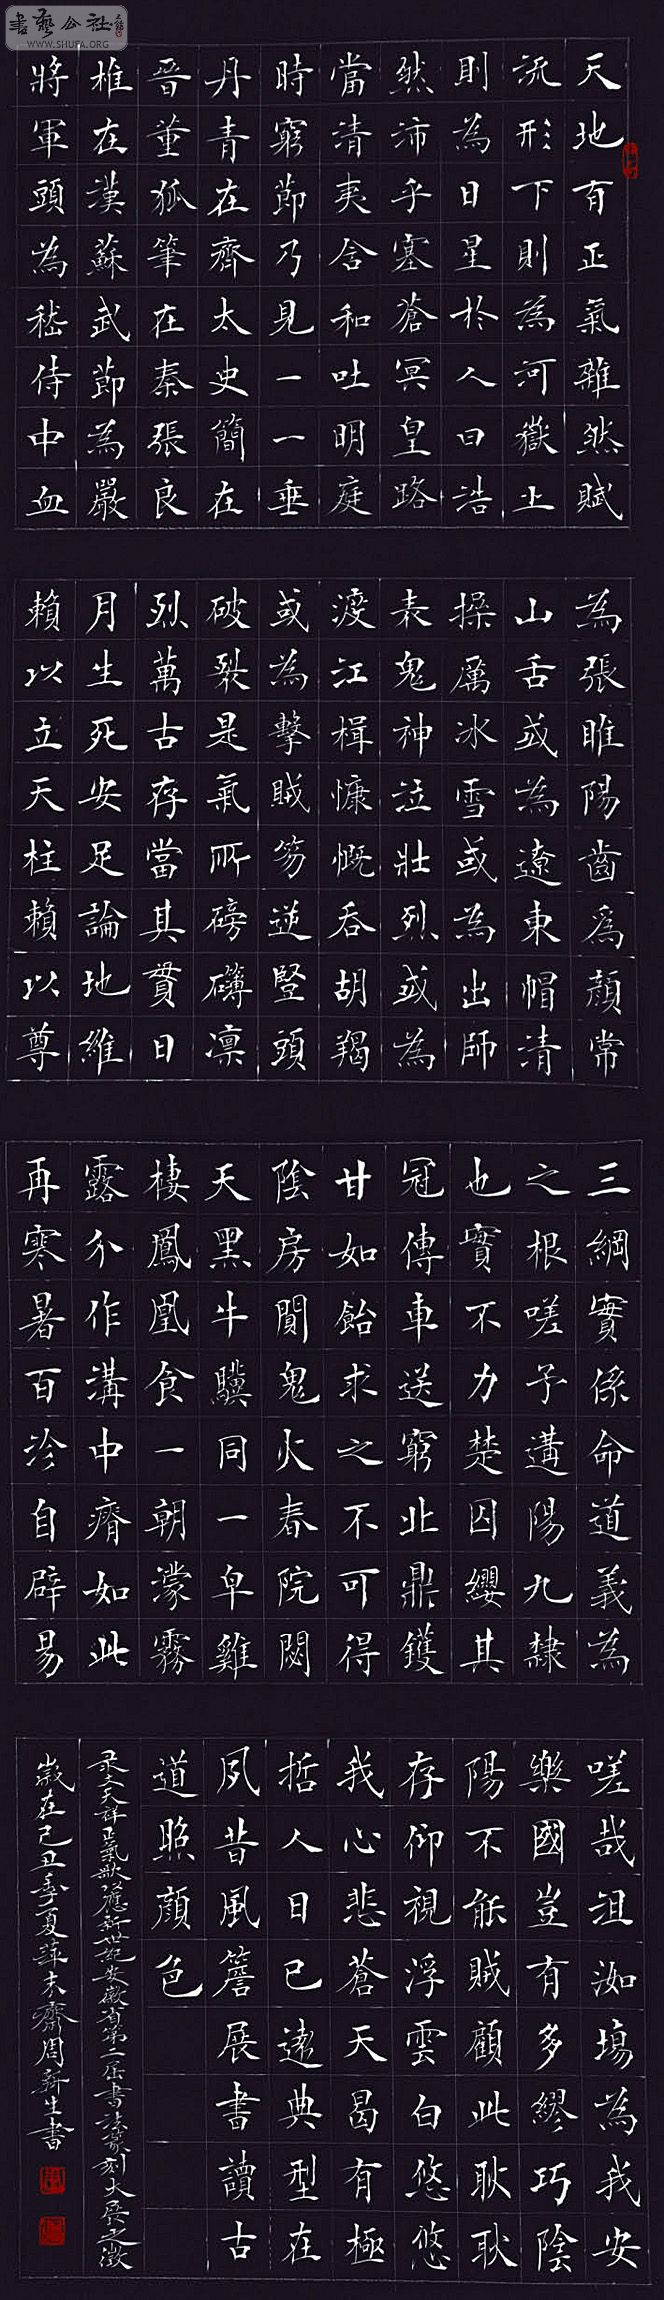 書藝公社
WWW.SHUFA.ORG
天地有正氣雜然賦
流形下則為河嶽上
則為日星於人曰浩
然沛乎塞蒼冥皇路
當清夷含和吐明庭
時窮節乃見一一垂
丹青在齊太史簡在
晉董狐筆在秦張良
椎在漢蘇武節為嚴
將軍頭為嵇侍中血
為張睢陽齒為顏常
山舌或為遼東帽清
操厲冰雪或為出師
表鬼神泣壯烈或為
渡江楫慷慨吞胡羯
或為擊賊笏逆豎頭
破裂是氣所磅礴凜
烈萬古存當其貫日
月生死安足論地維
賴以立天柱賴以尊
三綱實係命道義為
之根嗟予遘陽九隸
也實不力楚囚纓其
冠傳車送窮北鼎鑊
甘如飴求之不可得
陰房闃鬼火春院閟
天黑牛驥同一皁雞
棲鳳凰食一朝濛霧
露分作溝中瘠如此
再寒暑百沴自辟易
嗟哉沮洳場為我安
樂國豈有多繆巧陰
陽不能賊顧此耿耿
存仰視浮雲白悠悠
我心悲蒼天曷有極
哲人日已遠典型在
夙昔風簷展書讀古
道照顏色
录文天祥正氣歌以應新世紀安徽省第二屆書法篆刻大展之徵
歲在己丑季夏萍末齋周新生書